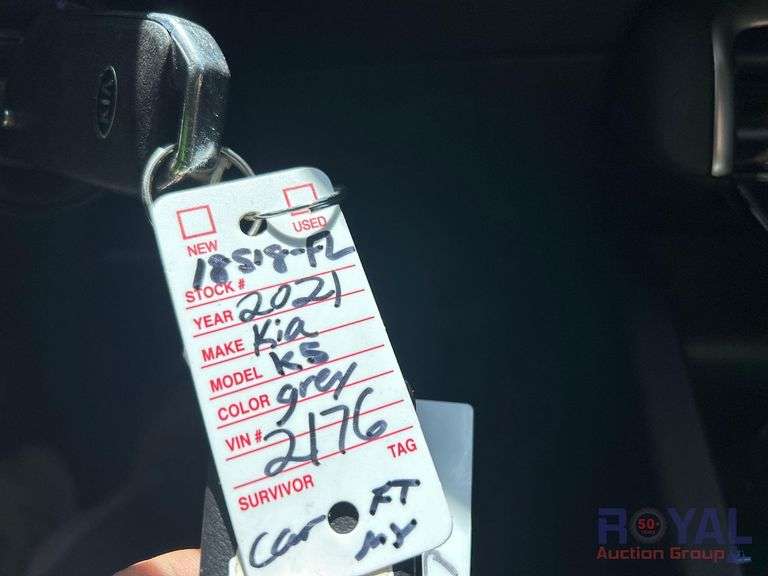 KIA
NEW USED
STOCK # 18518-FL
YEAR 2021
MAKE Kia
MODEL K5
COLOR grey
VIN # 2176
SURVIVOR TAG
Car FT
MY
ROYAL
50
Auction Group